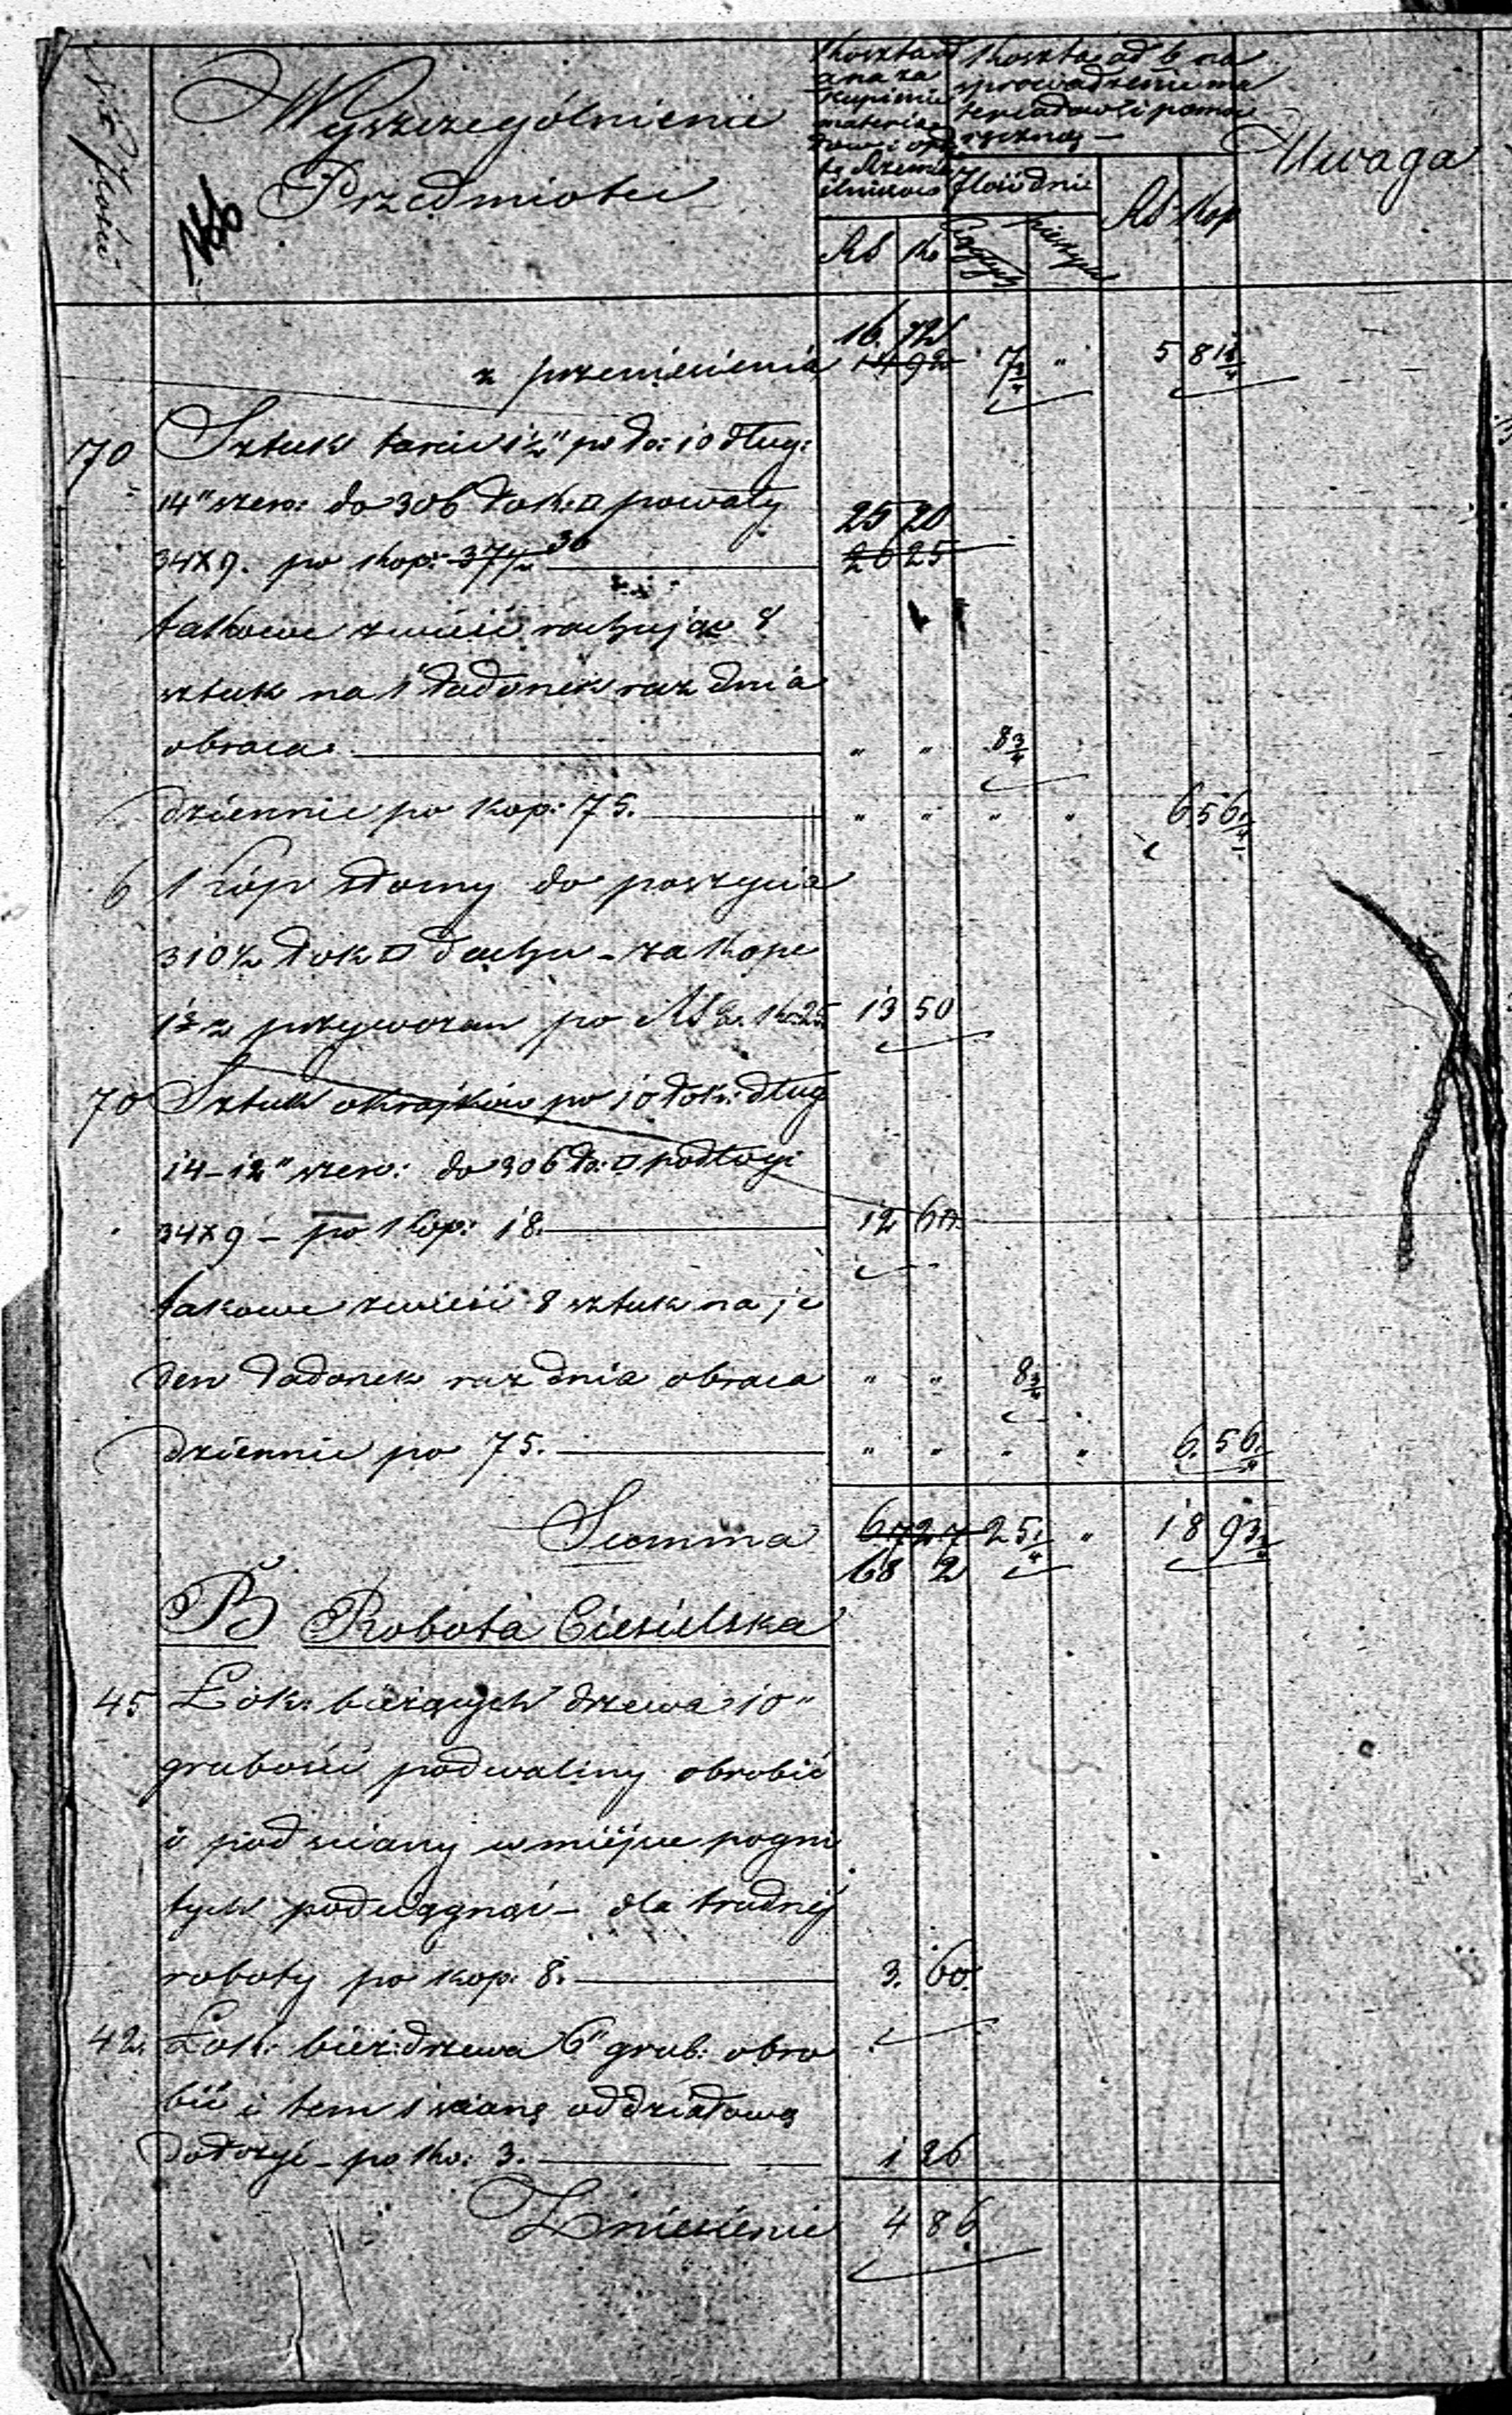 Ilość
Wyszczególnienie
Przedmiotu
Koszta od
a na za
kupienie
materia
łów i opła
tę Rzemie
ślników
Koszta od b na
sprowadzenie ma
teriałów i pomoc
ręczną —
Ilość dni
ciągłych
pieszych
Rs Ko
Rs Kop
Uwaga
16 72
z przeniesienia 14 92 7 3/4 " 5 81 1/4
70 Sztuk tarcic 1 1/2" po ło: 10 dług:
14" szer: do 306 łok: □ powały 25 20
34x9. po kop: 37 1/2 36 — 26 25
takowe zwieść rachując 8
sztuk na 1 ładunek raz dnia
obraca — " " 8 3/4
dziennie po kop: 75. — " " " " 6 56 1/4
6 kóp słomy do poszycia
310 1/2 łok □ dachu – za kopę
z przywozem po Rs 2. ko 25 13 50
70 Sztuk okrajków po 10 łok: dług
14–12" szer: do 306 ło: □ podłogi
34x9 – po kop: 18. — 12 60
takowe zwieść 8 sztuk na je
den ładunek raz dnia obraca " " 8 3/4
dziennie po 75. — " " " " 6 56 1/4
Summa 67 27 25 1/4 " 18 93 3/4
68 2
B Robota Ciesielska
45 Łok: bieżących drzewa 10"
grubości podwaliny obrobić
i pod ściany w miejsce pogni
tych podciągnąć – dla trudnéj
roboty po kop: 8. — 3. 60.
42. Łok: bież: drzewa 6" grub: obro
bić i tem 1 ścianę oddziałową
dołożyć – po ko: 3. — 1 26
Zniesienie 4 86